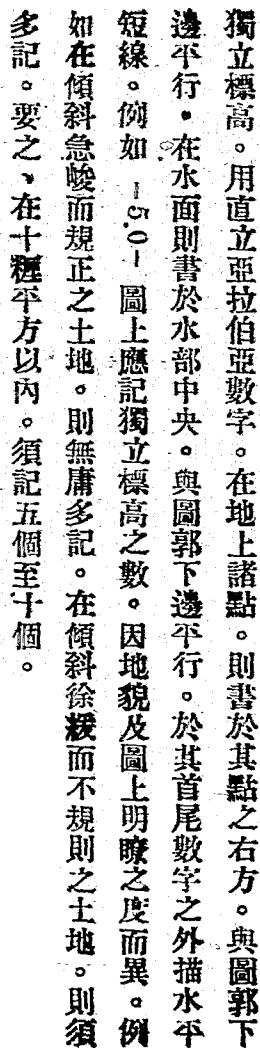 獨立標高。用直立亞拉伯亞數字。在地上諸點。則書於其點之右方。與圖郭下
邊平行。在水面則書於水部中央。與圖郭下邊平行。於其首尾數字之外描水平
短線。例如 —5.0— 圖上應記獨立標高之數。因地貌及圖上明瞭之度而異。例
如在傾斜急峻而規正之土地。則無庸多記。在傾斜徐緩而不規則之土地。則須
多記。要之、在十糎平方以內。須記五個至十個。